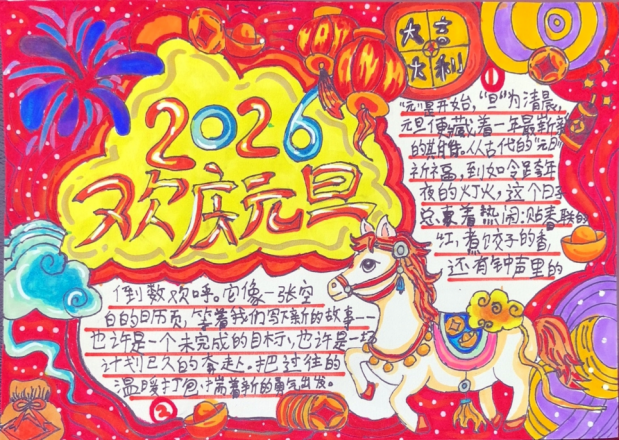 2026
欢庆元旦
大吉
大利
①
"元"是开始，"旦"为清晨，
元旦便藏着一年最崭新
的期待。从古代的"元日"
祈福，到如今跨年
夜的灯火，这个日子
总裹着热闹：贴春联的
红，煮饺子的香，
还有钟声里的
倒数欢呼。它像一张空
白的日历页，等着我们写下新的故事——
也许是一个未完成的目标，也许是一场
计划已久的奔赴。把过往的
温暖打包，揣着新的勇气出发。
②